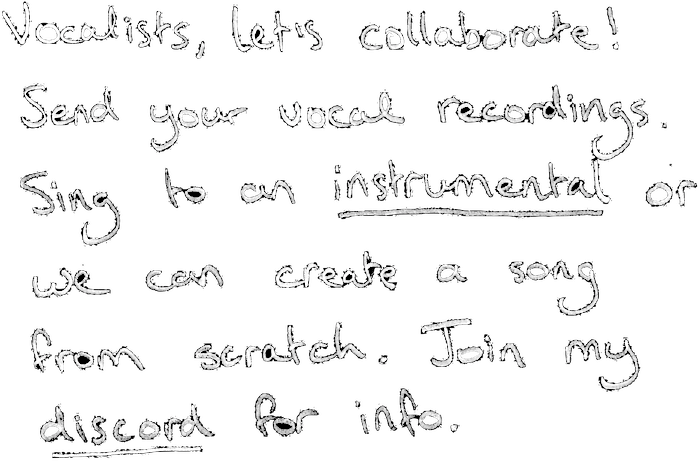 Vocalists, let's collaborate!
Send your vocal recordings.
Sing to an instrumental or
we can create a song
from scratch. Join my
discord for info.